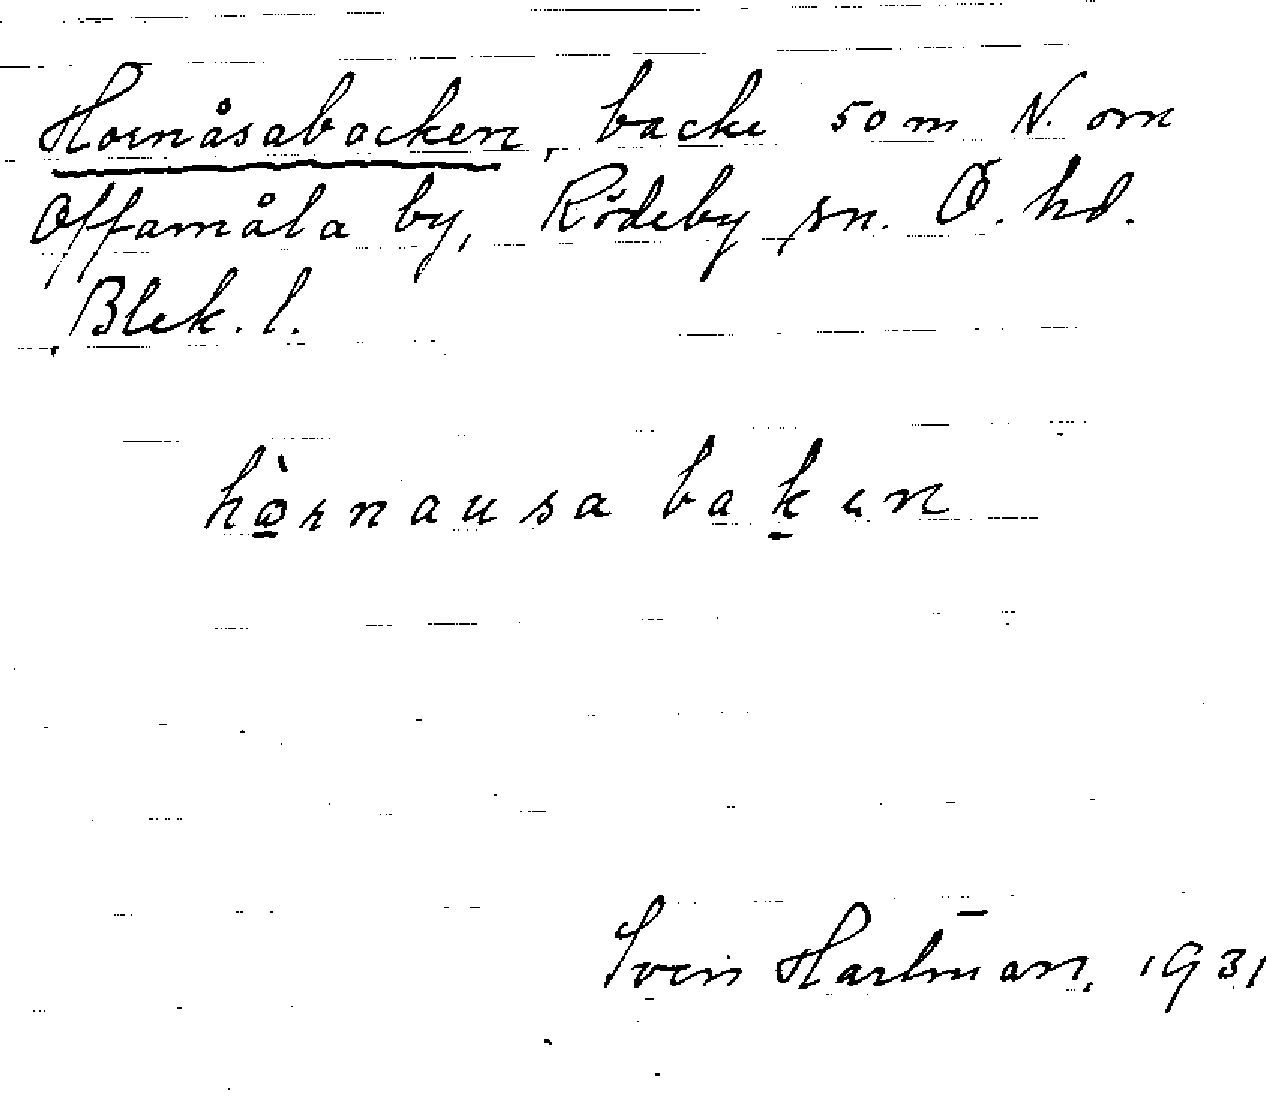 Hornåsabacken, backe 50 m N. om
Offamåla by, Rödeby sn. Ö. hd.
Blek. l.
hò̱rnausa baḵen
Sven Hartman, 1931